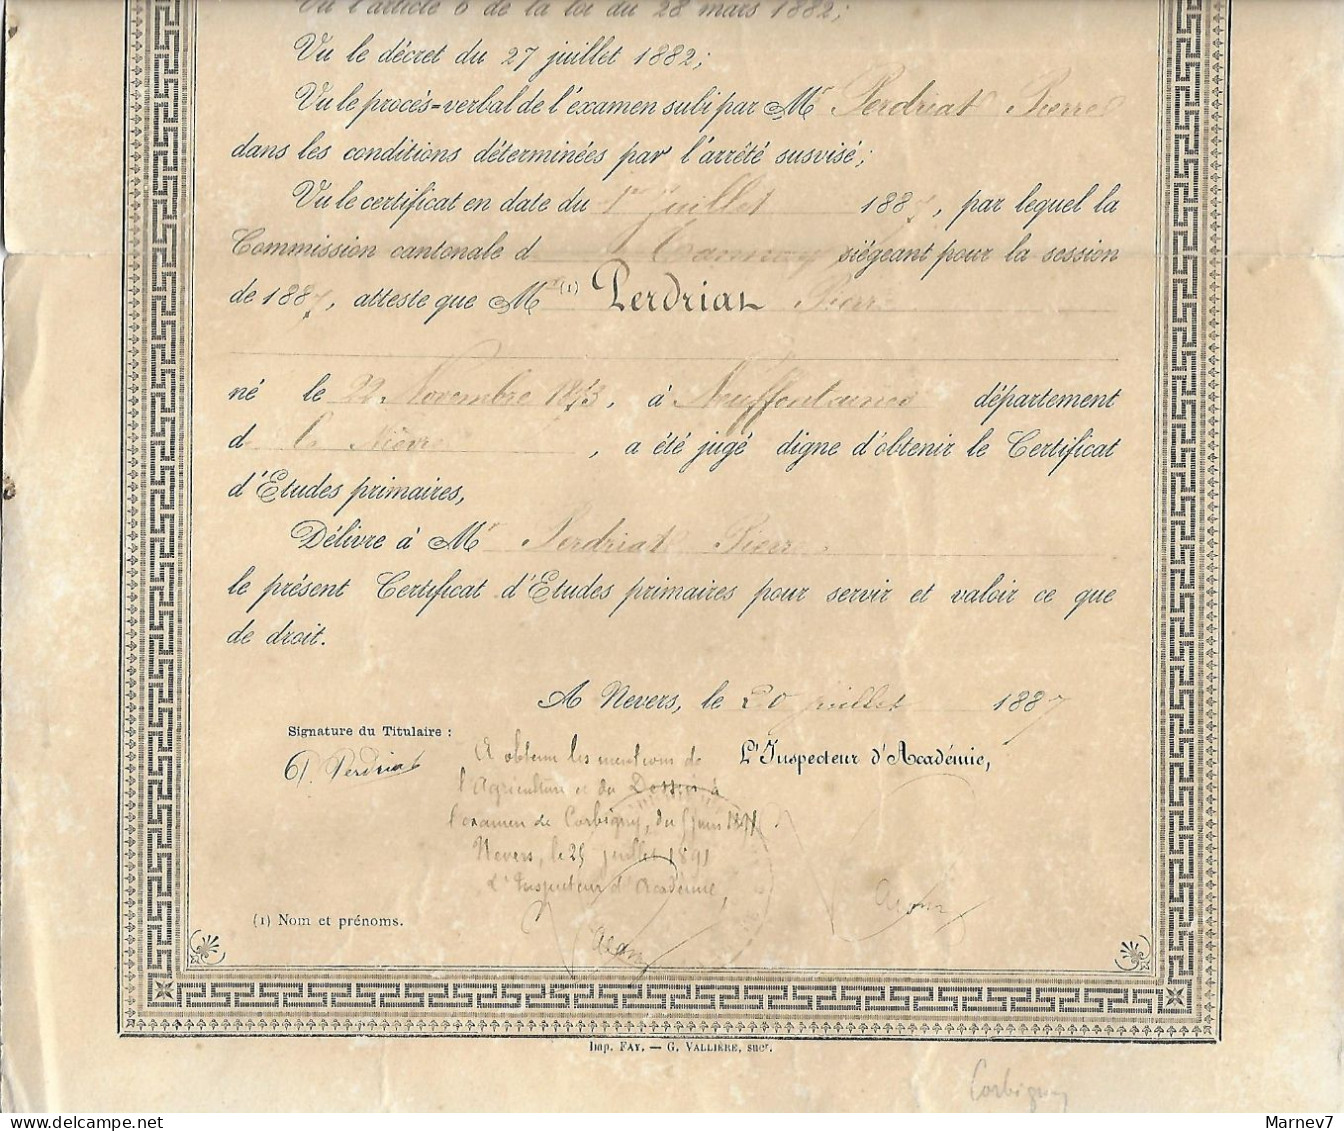 Vu l'article 6 de la loi du 28 mars 1882;
Vu le décret du 27 juillet 1882;
Vu le procès-verbal de l'examen subi par Mr Perdriat Pierre
dans les conditions déterminées par l'arrêté susvisé;
Vu le certificat en date du 1er juillet 1887, par lequel la
Commission cantonale d siégeant pour la session
de 1887, atteste que Mr (1) Perdriat Pierre
né le 22 Novembre 1873, à Neuffontaines département
d la Nièvre, a été jugé digne d'obtenir le Certificat
d'Etudes primaires,
Délivré à Mr Perdriat Pierre
le présent Certificat d'Etudes primaires pour servir et valoir ce que
de droit.
A Nevers, le 20 juillet 1887
Signature du Titulaire :
P. Perdriat
L'Inspecteur d'Académie,
A obtenu les mentions de
l'Agriculture et du Dessin à
l'examen de Corbigny, du 5 juin 1891.
Nevers, le 25 juillet 1891
L'Inspecteur d'Académie,
(1) Nom et prénoms.
Imp. FAY. — G. VALLIÈRE, sucr.
Corbigny
Marnev7